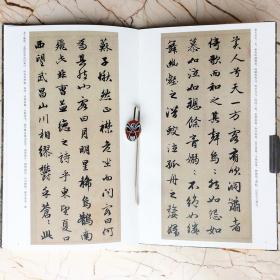 美人兮天一方客有吹洞簫者
倚歌而和之其聲烏烏然如怨如
慕如泣如訴餘音嫋嫋不絕如縷
舞幽壑之潛蛟泣孤舟之嫠婦
蘇子愀然正襟危坐而問客曰何
為其然也客曰月明星稀烏鵲南
飛此非曹孟德之詩乎東望夏口
西望武昌山川相繆鬱乎蒼蒼此